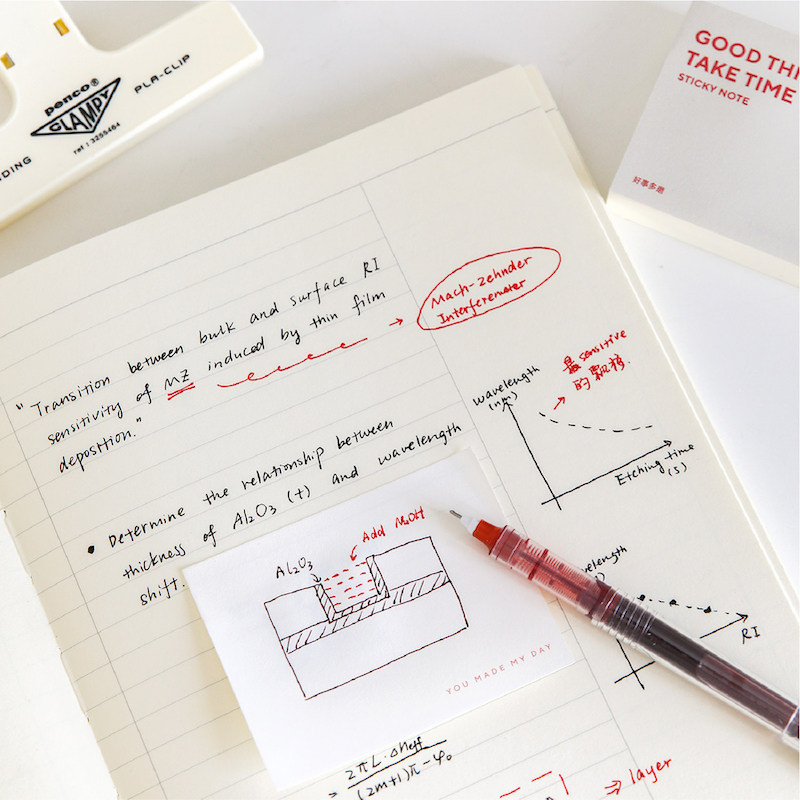 penco®
CLAMPY
PLA-CLIP
ref : 3255464
DING
GOOD THI
TAKE TIME
STICKY NOTE
好事多磨
"Transition between bulk and surface RI
sensitivity of MZ induced by thin film
deposition."
Mach-Zehnder
Interferometer
最sensitive
的飘移.
wavelength
(nm)
Etching time
(s)
• Determine the relationship between
thickness of Al₂O₃ (t) and wavelength
shift.
Al₂O₃
Add MeOH
YOU MADE MY DAY
velength
RI
= 2πL·Δneff
(2m+1)π-φ₀
⇒ layer